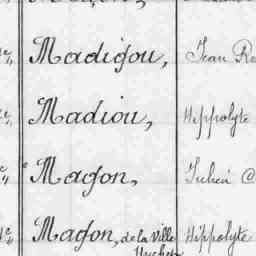 Madigou, Jean
Madiou, Hippolyte
Magon,
Magon, de la Ville Hippolyte